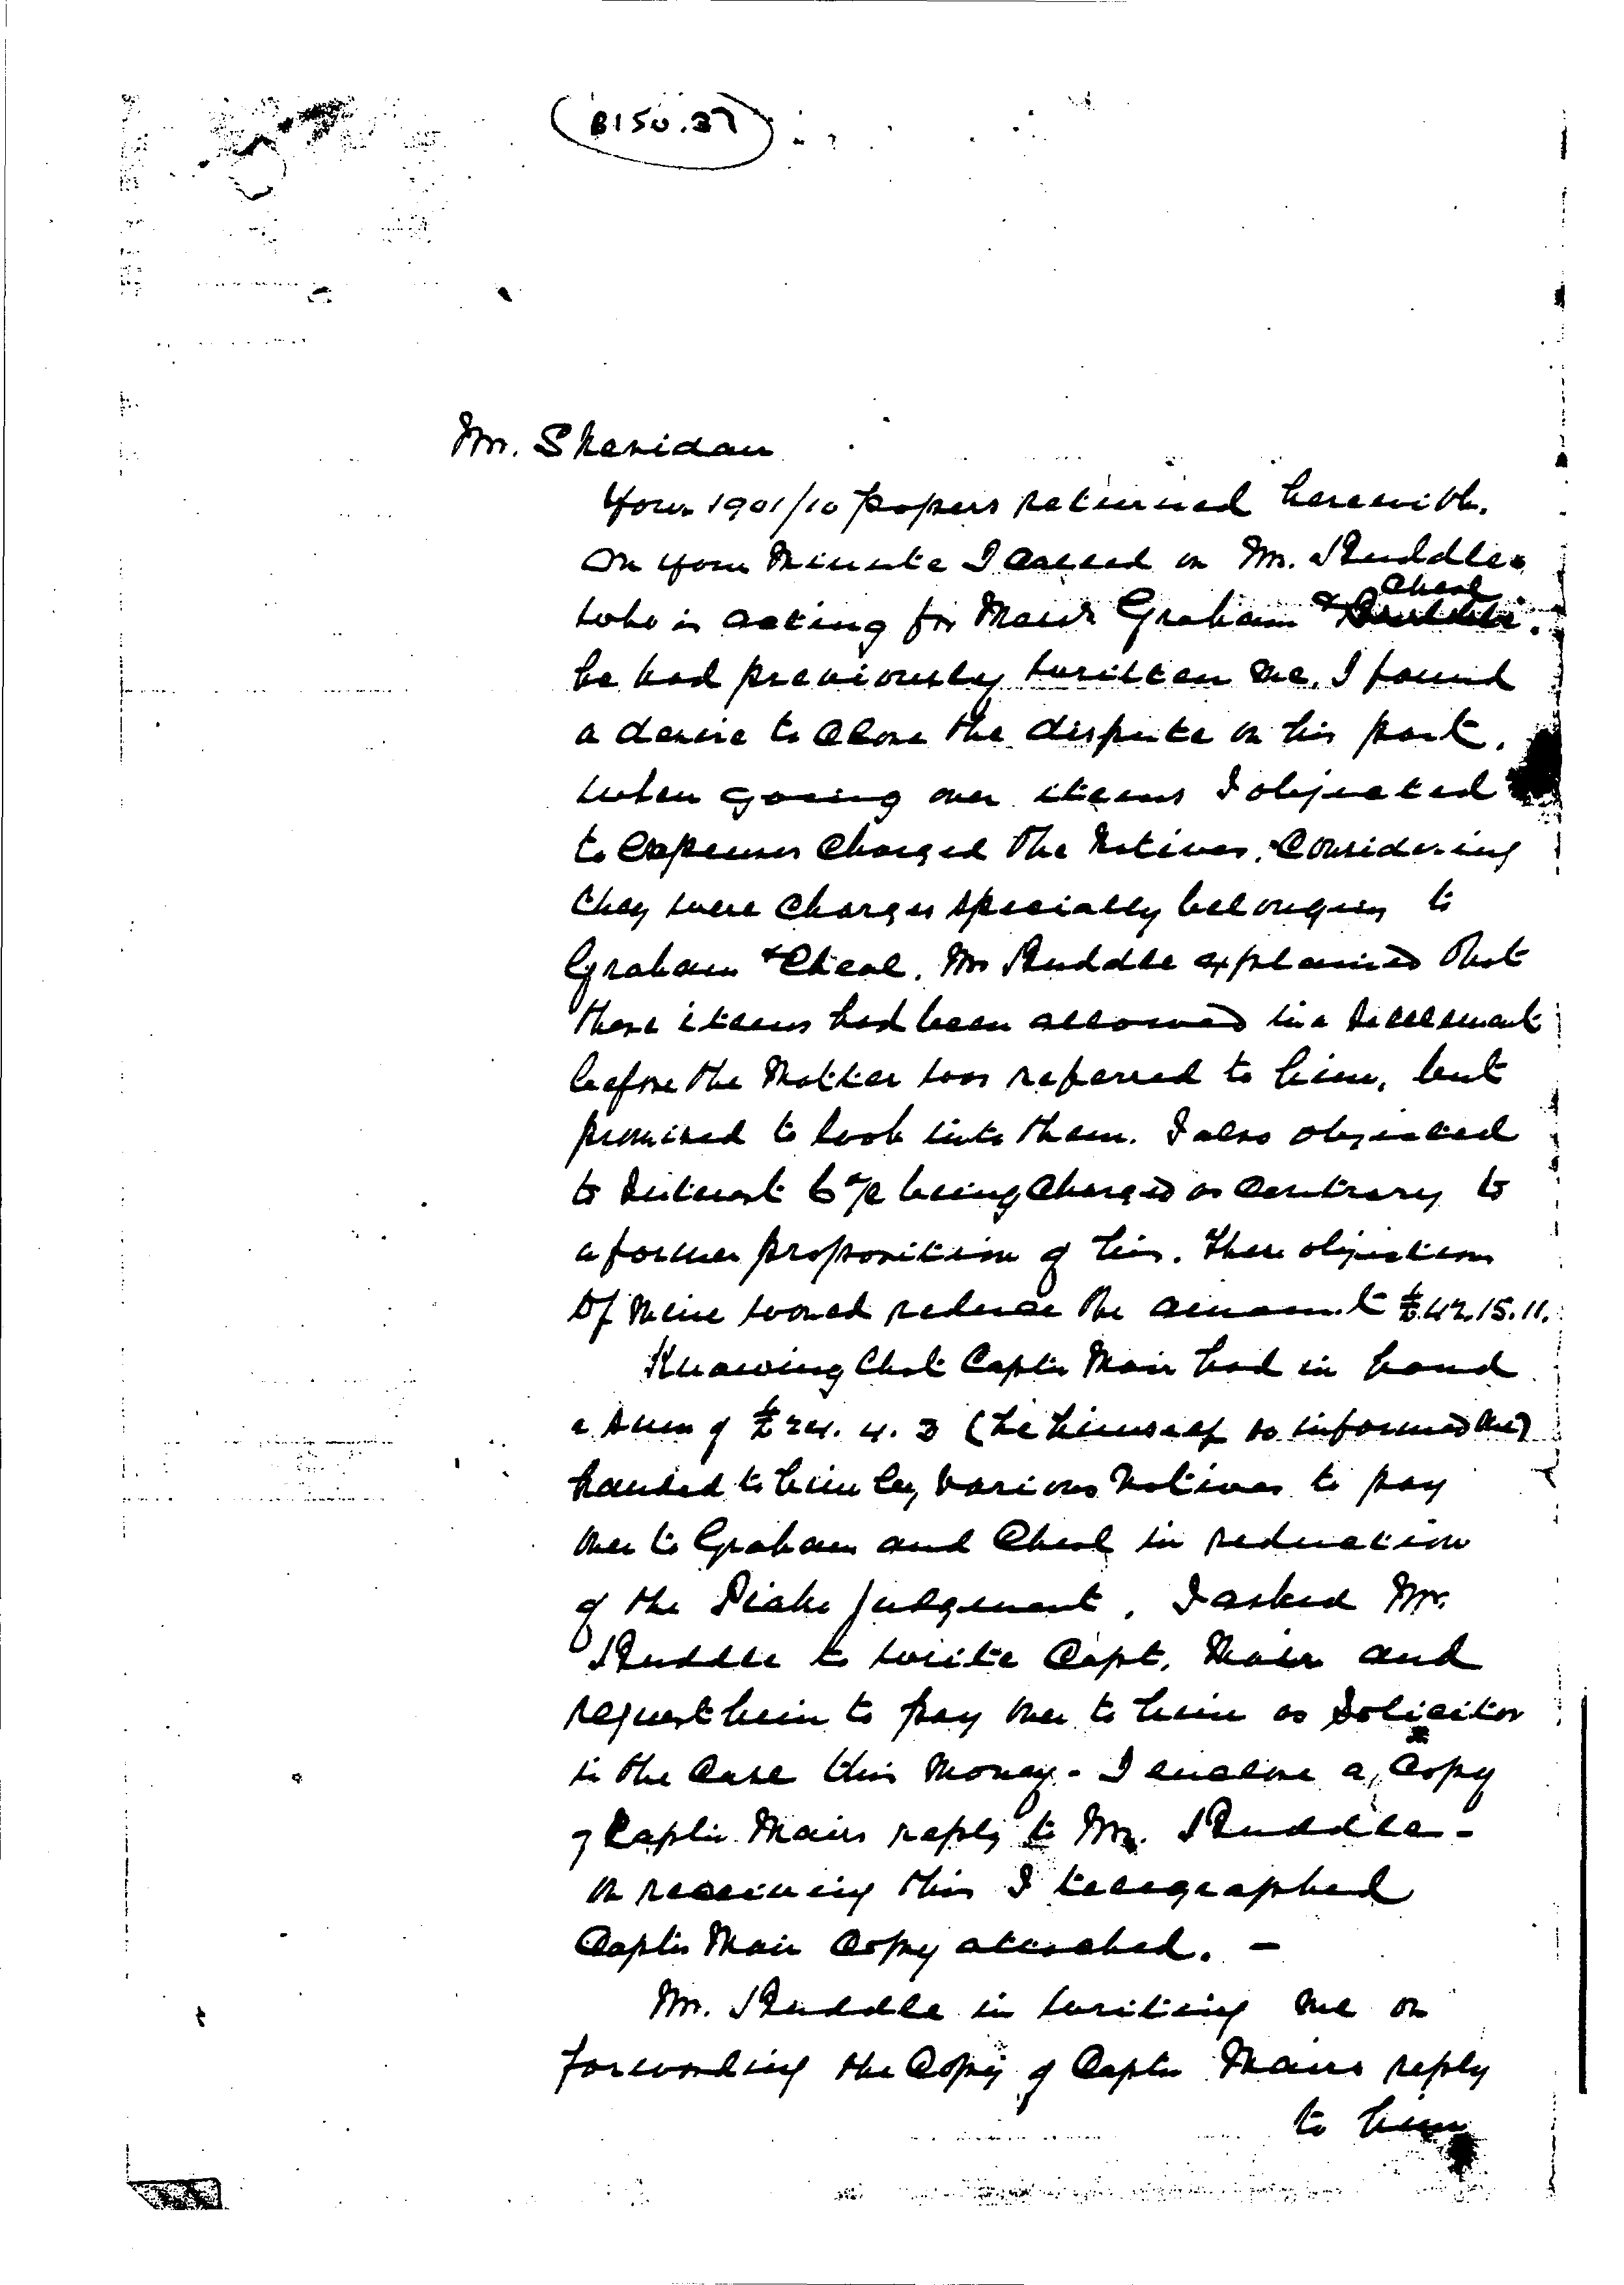 B150.37
Mr. Sheridan
Your 1901/10 papers returned herewith.
On your Minute I called on Mr. Studdle
who is acting for Messrs Graham & Cheal.
he had previously written me. I found
a desire to close the dispute on his part.
when going over items I objected
to expenses charged the Natives. Considering
they were charges specially belonging to
Graham & Cheal. Mr Studdle explained that
these items had been allowed in a settlement
before the Matter was referred to him, but
promised to look into them. I also objected
to Interest 6 % being charged as contrary to
a former proposition of his. These objections
of mine would reduce the amount £42.15.11.
Knowing that Captn Mair had in hand
a sum of £24. 4. 3 (he himself so informed me)
handed to him by various Natives to pay
over to Graham and Cheal in reduction
of the judgement, I asked Mr.
Studdle to write Capt. Mair and
request him to pay over to him as Solicitor
in the Case this Money - I enclose a Copy
of Captn. Mairs reply to Mr. Studdle -
On receiving this I telegraphed
Captn Mair Copy attached. -
Mr. Studdle in writing me on
forwarding the Copy of Captn Mairs reply
to him